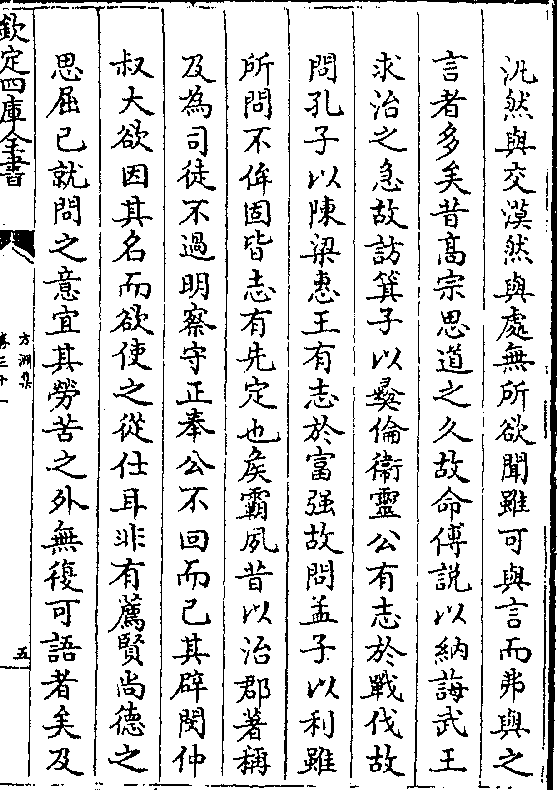 汎然與交漠然與處無所欲聞雖可與言而弗與之
言者多矣昔高宗思道之久故命傅説以納誨武王
求治之急故訪箕子以彞倫衞靈公有志於戰伐故
問孔子以陳梁惠王有志於富强故問孟子以利雖
所問不侔固皆志有先定也矦霸夙昔以治郡著稱
及為司徒不過明察守正奉公不回而已其辟閔仲
叔大欲因其名而欲使之從仕耳非有薦賢尚德之
思屈己就問之意宜其勞苦之外無復可語者矣及
欽定四庫全書
方洲集
卷三十
五